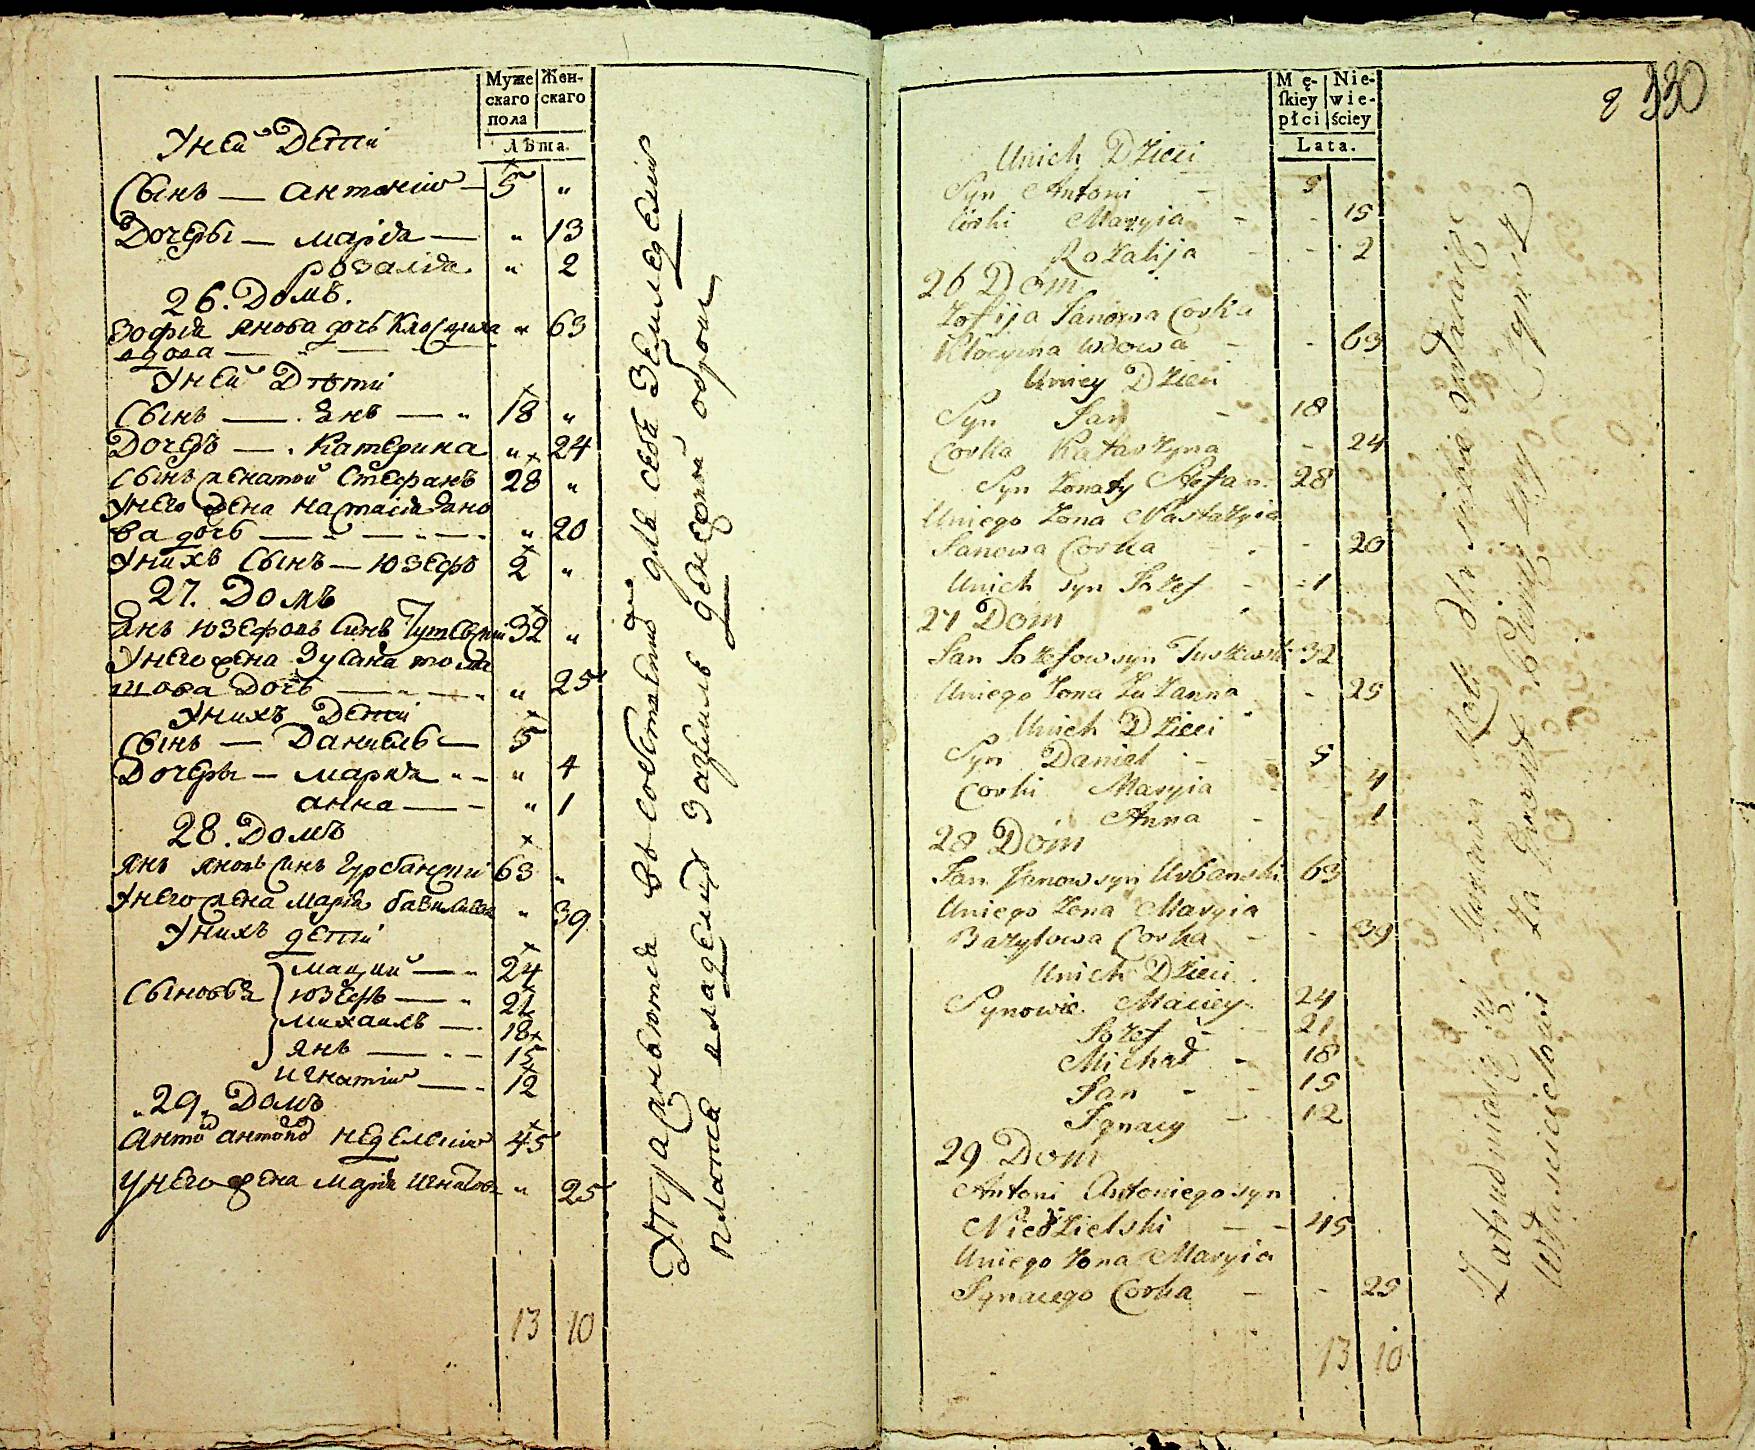 Муже
скаго
пола
Жен-
скаго
Лѣта.
У ней Дети
Сынъ — Антоний — 5 "
Дочеры — Маріа — " 13
Розаліа " 2
26. Домъ.
Зофіа Янова дочь " 63
вдова — " —
У ней Дѣти
Сынъ — Янъ — " 18 "
Дочеръ — Катерина " 24
Сынъ женатой Стефанъ 28 "
У него жена Настасіа Яно
ва дочь — " — " 20
У нихъ Сынъ — Юзефъ 2 "
27. Домъ
Янъ Юзефовъ Синъ 32 "
У него жена Зузана Тома
шова Дочь — " 25
У нихъ Дети
Сынъ — Даниель — 5
Дочеры — Мариа " — " 4
Анна — " 1
28. Домъ
Янъ Яновъ Синъ Урбанский 63 "
У него жена Маріа " 39
У нихъ дети
Сыновья Маций — " 24
Юзефъ — " 21
Михаилъ — 18
Янъ — 15
Игнатий — 12
"29" Домъ
45
У него жена Маріа " 25
13 10
Упражняются въ для себя Земледелие
платя владельцу денежный оброкъ
Mę-
ſkiey
płci
Nie-
wie-
ściey
Lata.
2 330
Unich Dzieci
Syn Antoni - 5
Córki Maryia - - 15
Rozalija - - 2
26 Dom
Zofija Janowa Corka
Wdowa - - 63
Uniey Dzieci
Syn Jan - 18
Corka Katarzyna - 24
Syn Zonaty Stefan 28
Uniego Zona Nastazyia
Janowa Corka - - - 20
Unich syn Jozef - - 1
27 Dom
Jan Jozefow syn 32
Uniego Zona Zuzanna - 25
Unich Dzieci
Syn Daniel - 5
Corki Maryia 4
Anna - 1
28 Dom
Jan Janow syn Urbanski 63
Uniego Zona Maryia
Bazylowa Corka - - 39
Unich Dzieci
Synowie Maciey 24
Jozef - - 21
Michał - 18
Jan - - 15
Jgnacy - 12
29 Dom
Antoni Antoniego syn
Niedzielski - - 45
Uniego Zona Maryia
Jgnacego Corka - - 25
13 10
Zatrudniaią się Roli dla siebie
Właścicielowi za Czynsz